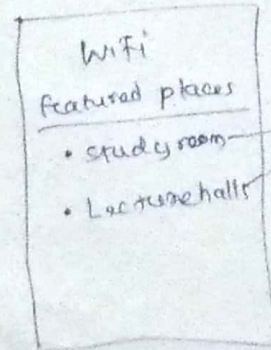 WiFi
featured places
• Study room
• Lecture halls